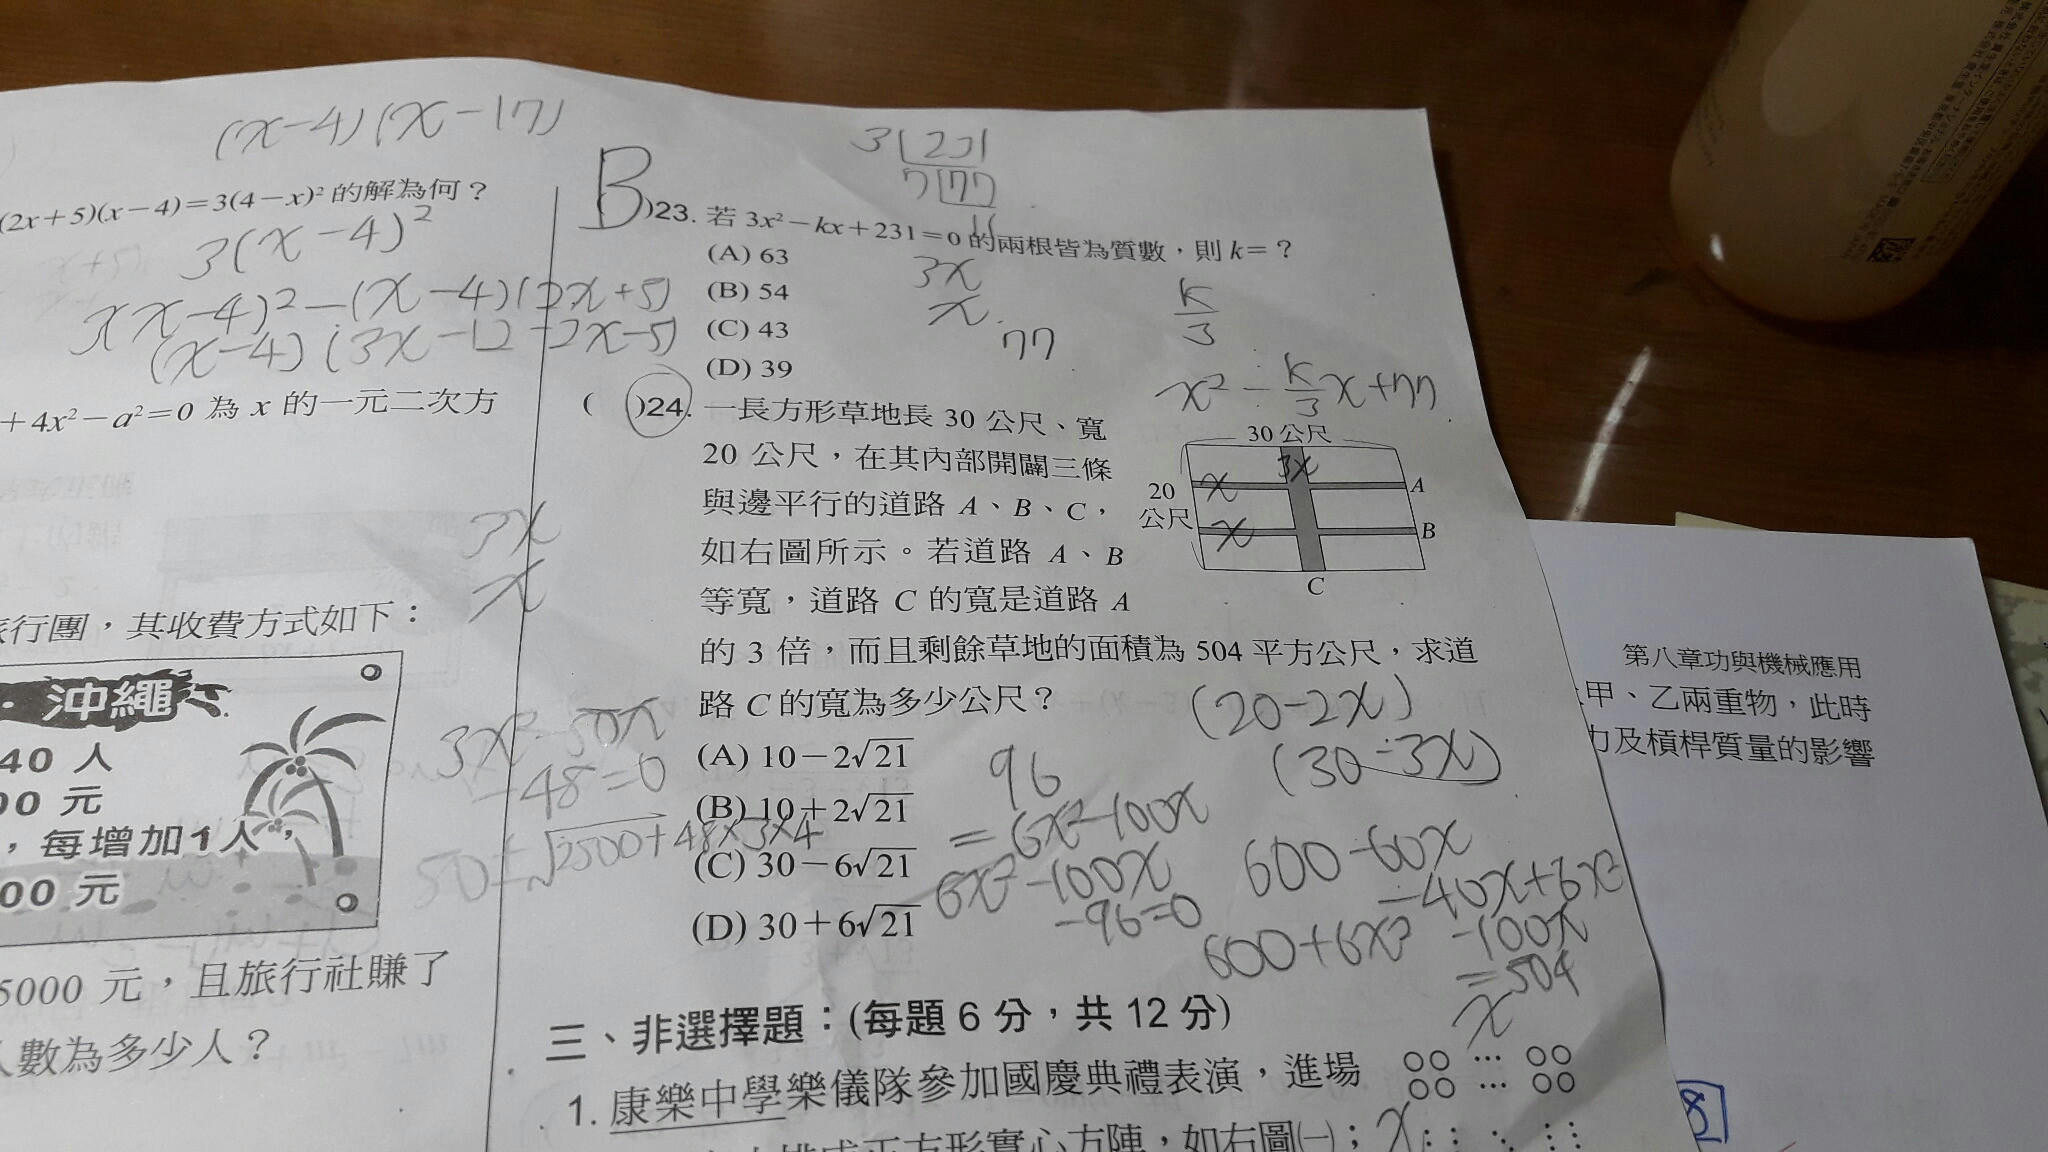 (x-4)(x-17)
(2x+5)(x-4)=3(4-x)²的解為何？
3(x-4)²
3(x-4)²-(x-4)(2x+5)
(x-4)(3x-12-2x-5)
+4x²-a²=0 為 x 的一元二次方
3x
x
旅行團，其收費方式如下：
沖繩
40 人
00 元
，每增加1人，
00 元
3x²-50x
-48=0
50±√2500+48×3×4
5000 元，且旅行社賺了
人數為多少人？
3 231
7 77
11
B )23. 若 3x²-kx+231=0 的兩根皆為質數，則 k=？
(A) 63
(B) 54
(C) 43
(D) 39
3x
x
77
k/3
x²-k/3x+77
( )24. 一長方形草地長 30 公尺、寬
20 公尺，在其內部開闢三條
與邊平行的道路 A、B、C，
如右圖所示。若道路 A、B
等寬，道路 C 的寬是道路 A
的 3 倍，而且剩餘草地的面積為 504 平方公尺，求道
路 C 的寬為多少公尺？
30 公尺
20
公尺
3x
x
x
A
B
C
(A) 10-2√21
(B) 10+2√21
(C) 30-6√21
(D) 30+6√21
(20-2x)
(30-3x)
96
=6x²-100x
6x²-100x
-96=0
600-60x
-40x+6x²
600+6x²
-100x
=504
x
三、非選擇題：(每題 6 分，共 12 分)
1. 康樂中學樂儀隊參加國慶典禮表演，進場
排成正方形實心方陣，如右圖㈠；
x
第八章功與機械應用
甲、乙兩重物，此時
力及槓桿質量的影響
8